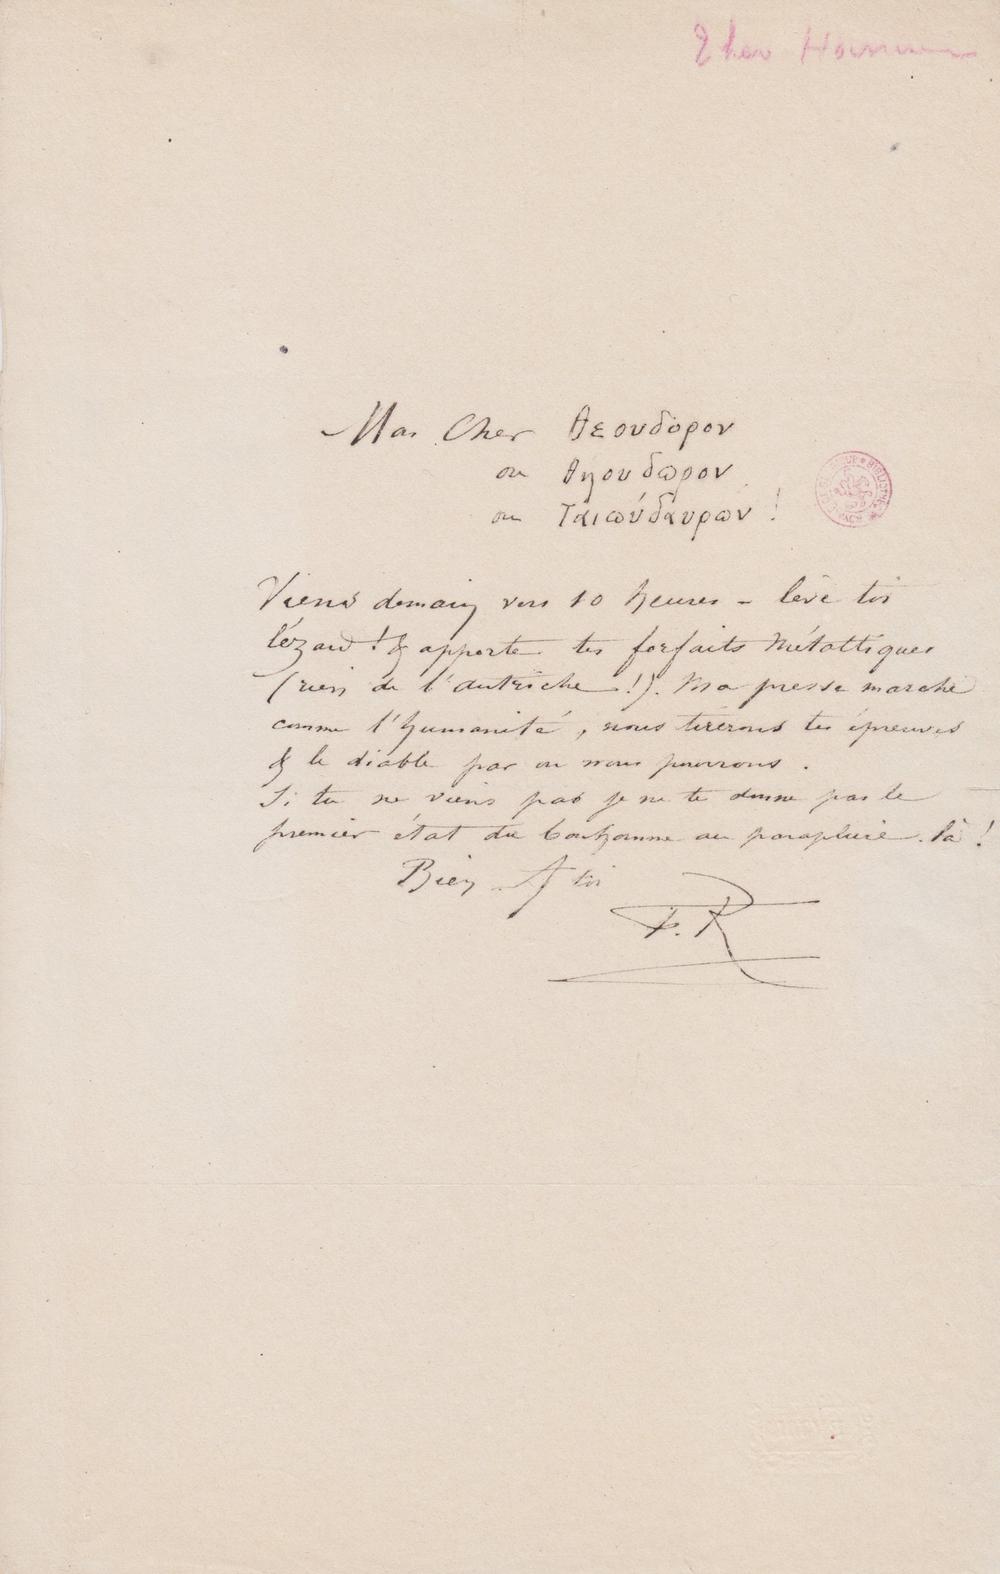 Theo Hannon
Mon Cher Θεουδορον
ou Θηουδωρον
ou Ταιωύδαυρων !
Viens demain vers 10 heures – lève toi
lézard ! & apporte tes forfaits métalliques
(rien de l'autriche !). Ma presse marche
comme l'humanité, nous tirerons tes épreuves
& le diable par où nous pourrons.
Si tu ne viens pas je ne te donne pas le
premier état du bonhomme au parapluie. là !
Bien A toi
F. R